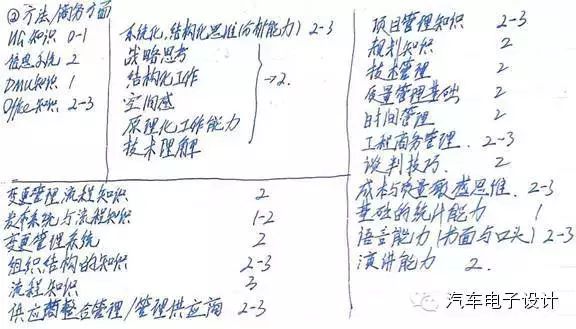 ②方法/商务方面
UG知识 0-1
信息系统 2
DMU知识 1
Office知识 2-3
系统化,结构化思维(分析能力) 2-3
战略思考
结构化工作
空间感
原理化工作能力
技术理解
→2.
变更管理流程知识 2
发布系统与流程知识 1-2
变更管理系统 2
组织结构的知识 2-3
流程知识 3
供应商整合管理/管理供应商 2-3
项目管理知识 2-3
规划知识 2
技术管理 2
质量管理基础 2
时间管理 2
工程商务管理. 2-3
谈判技巧. 2
成本与质量敏感思维. 2-3
基础的统计能力 1
语言能力(书面与口头) 2-3
演讲能力 2.
汽车电子设计